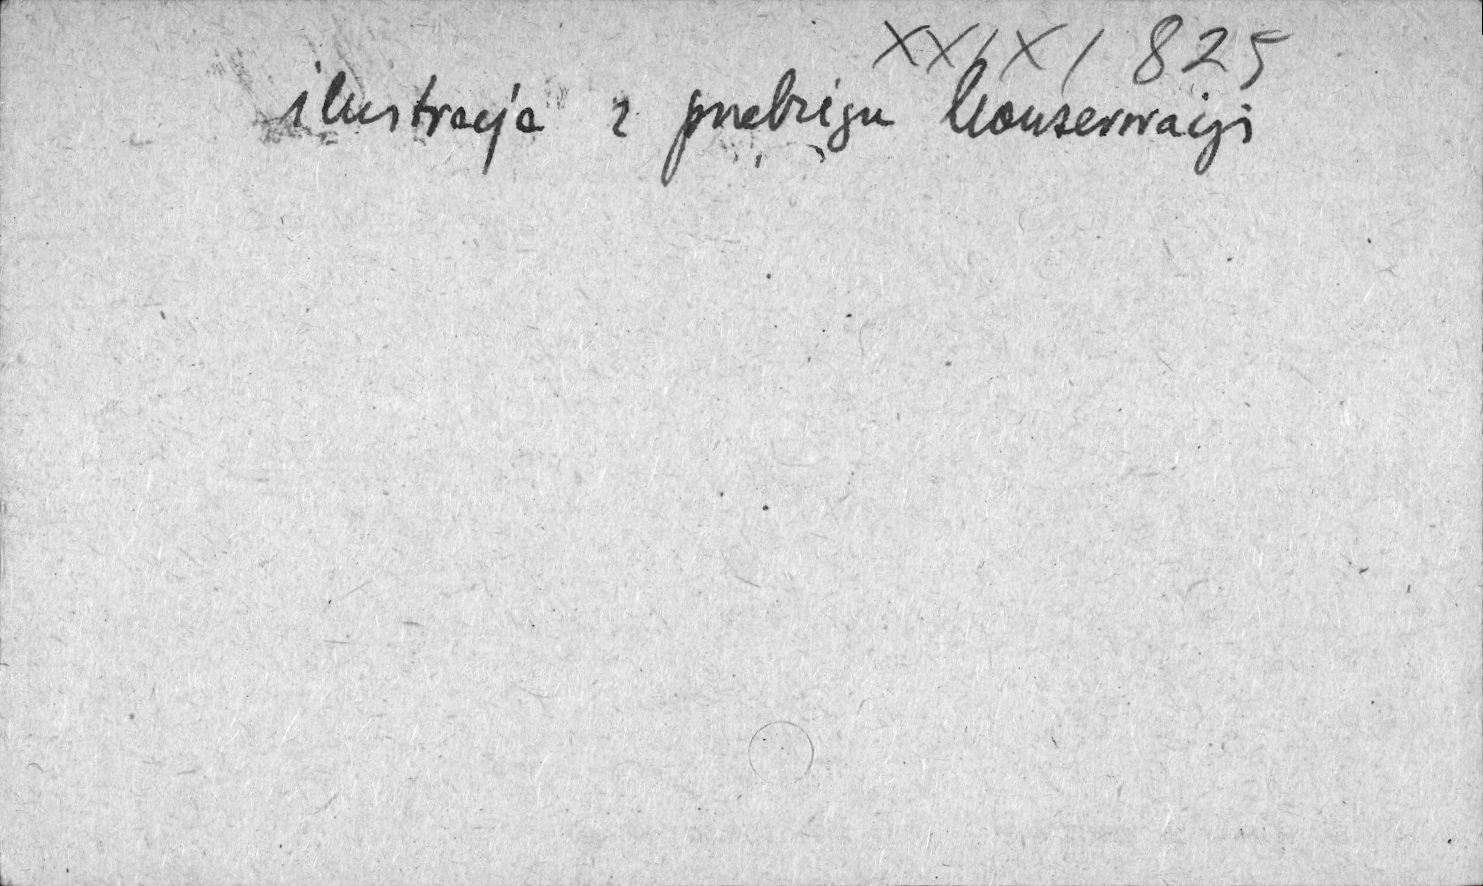 XX/X/825
ilustracja z przebiegu konserwacji